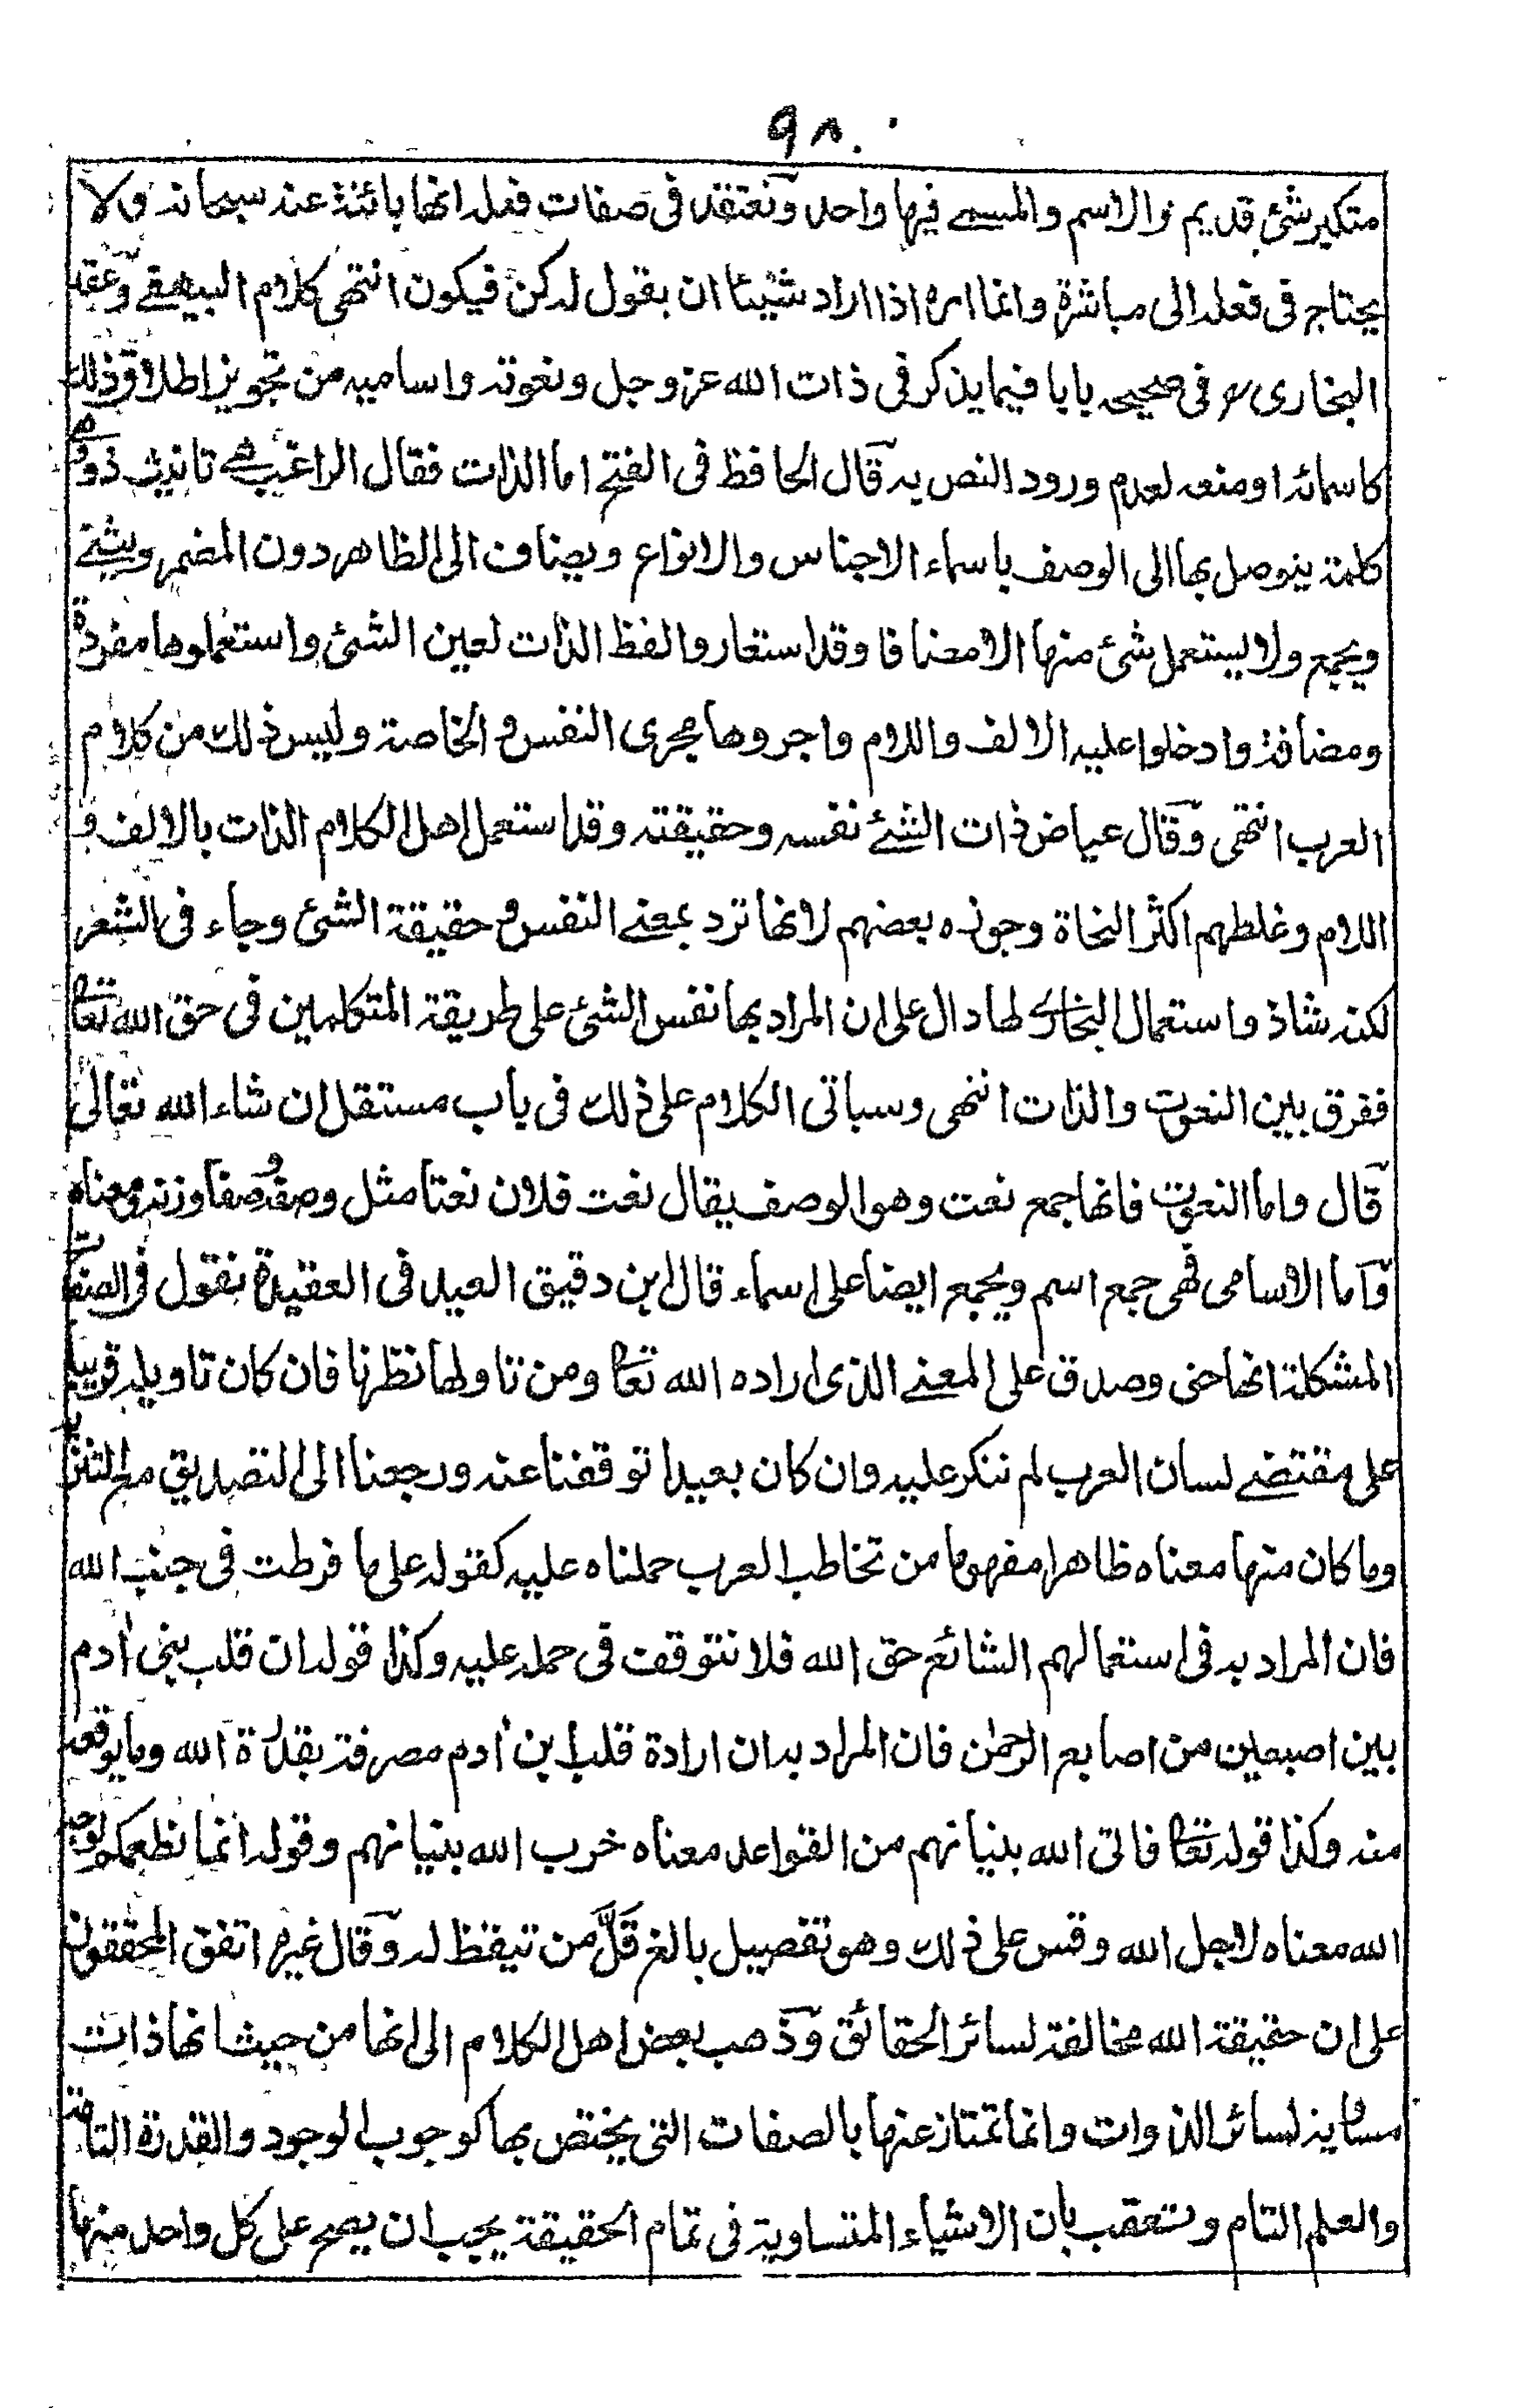 ٩٨
متكبر شئ قديم والاسم والمسمے فيها واحد ونعتقد فی صفات فعله انها بائنة عنه سبحانه ولا
يحتاج فی فعله الی مباشرة وانما امره اذا اراد شيئا ان يقول له كن فيكون انتهی كلام البيهقے وعقد
البخاری فی صحيحه بابا فيما يذكر فی ذات الله عز وجل ونعوته واساميه من تجويز اطلاق ذلك
كاسمائه او منعه لعدم ورود النص به قال الحافظ فی الفتح اما الذات فقال الراغب هے تانيث ذو و
كلمة يتوصل بها الی الوصف باسماء الاجناس والانواع ويضاف الی الظاهر دون المضمر ويثنے
ويجمع ولا يستعمل شئ منها الا مضافا وقد استعاروا لفظ الذات لعين الشئ واستعملوها مفردة
ومضافة وادخلوا عليه الالف واللام واجروها مجری النفس و الخاصة وليس ذلك من كلام
العرب انتهی وقال عياض ذات الشئے نفسه وحقيقته وقد استعمل اهل الكلام الذات بالالف و
اللام وغلطهم اكثر النحاة وجوزه بعضهم لانها ترد بمعنے النفس و حقيقة الشئ وجاء فی الشعر
لكنه شاذ واستعمال البخاری لها دال علی ان المراد بها نفس الشئ علی طريقة المتكلمين فی حق الله تعا
ففرق بين النعوت والذات انتهی وسياتی الكلام علی ذلك فی باب مستقل ان شاء الله تعالی
قال واما النعوت فانها جمع نعت وهو الوصف يقال نعت فلان نعتا مثل وصفه وصفا وزنه ومعناه
واما الاسامی فهی جمع اسم ويجمع ايضا علی اسماء قال ابن دقيق العيد فی العقيدة نقول فی الصفات
المشكلة انها حق وصدق علی المعنے الذی اراده الله تعا ومن تاولها نظرنا فان كان تاويله قريبا
علی مقتضے لسان العرب لم ننكر عليه وان كان بعيدا توقفنا عنه ورجعنا الی التصديق مع التنزيه
وما كان منها معناه ظاهرا مفهوما من تخاطب العرب حملناه عليه كقوله علی ما فرطت فی جنب الله
فان المراد به فی استعمالهم الشائع حق الله فلا نتوقف فی حمله عليه وكذا قوله ان قلب بنی اٰدم
بين اصبعين من اصابع الرحمٰن فان المراد به ان ارادة قلب ابن اٰدم مصرفة بقدرة الله وما يوقعه
منه وكذا قوله تعا فاتی الله بنيانهم من القواعد معناه خرب الله بنيانهم وقوله انما نطعمكم لوجه
الله معناه لاجل الله وقس علی ذلك وهو تفصيل بالغ قلّ من تيقظ له وقال غيره اتفق المحققون
علی ان حقيقة الله مخالفة لسائر الحقائق وذهب بعض اهل الكلام الی انها من حيث انها ذات
مساوية لسائر الذوات وانما تمتاز عنها بالصفات التی يختص بها كوجوب الوجود والقدرة التامة
والعلم التام وتعقب بان الاشياء المتساوية فی تمام الحقيقة يجب ان يصح علی كل واحد منها